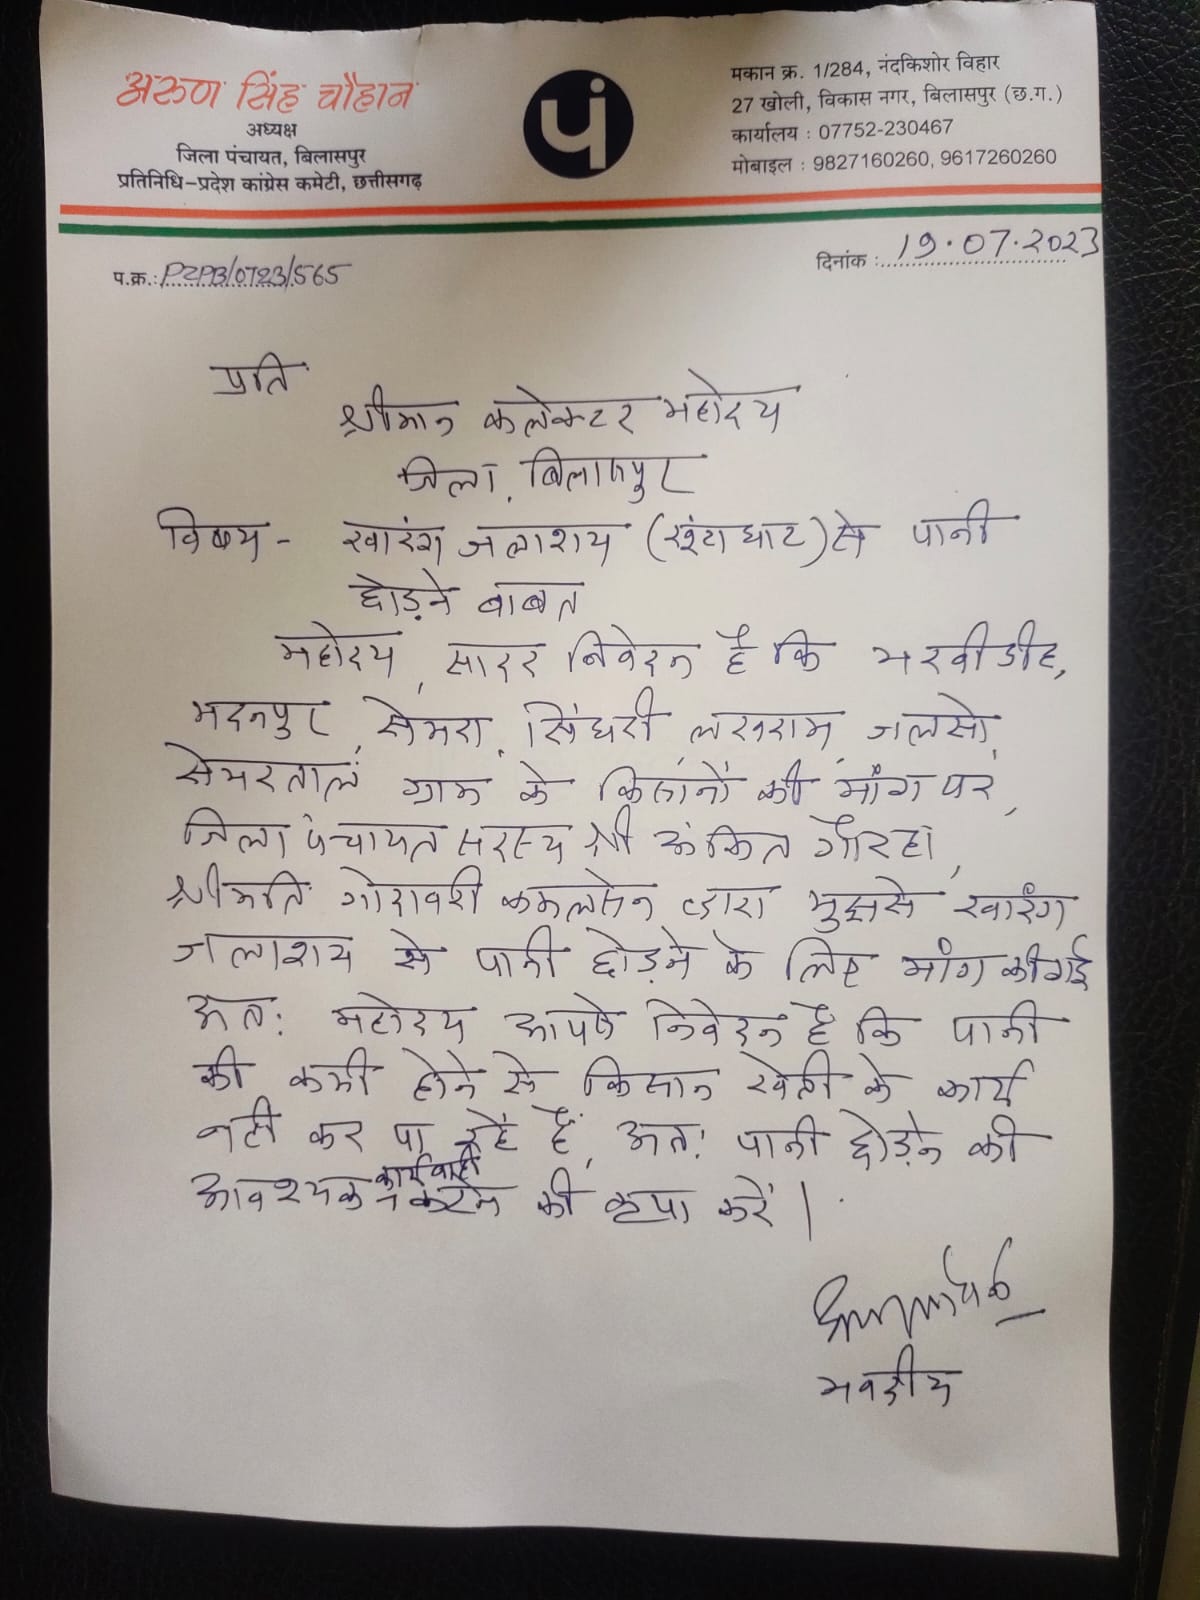 अरुण सिंह चौहान
अध्यक्ष
जिला पंचायत, बिलासपुर
प्रतिनिधि-प्रदेश कांग्रेस कमेटी, छत्तीसगढ़
पं
मकान क्र. 1/284, नंदकिशोर विहार
27 खोली, विकास नगर, बिलासपुर (छ.ग.)
कार्यालय : 07752-230467
मोबाइल : 9827160260, 9617260260
प.क्र.: PZPB/0723/565
दिनांक : 19.07.2023
प्रति
श्रीमान कलेक्टर महोदय
जिला, बिलासपुर
विषय - खारंग जलाशय (खूंटाघाट) से पानी
छोड़ने बाबत
महोदय, सादर निवेदन है कि भरवीडीह,
मदनपुर, सेमरा, सिंघरी, लखराम, जलसो,
सेमरताल ग्राम के किसानों की मांग पर,
जिला पंचायत सदस्य श्री अंकित गौरहा,
श्रीमति गोदावरी कमलसेन द्वारा मुझसे खारंग
जलाशय से पानी छोड़ने के लिए मांग की गई
अतः महोदय आपसे निवेदन है कि पानी
की कमी होने से किसान खेती के कार्य
नही कर पा रहें हैं, अतः पानी छोड़ने की
आवश्यक कार्यवाही करने की कृपा करें।
भवदीय